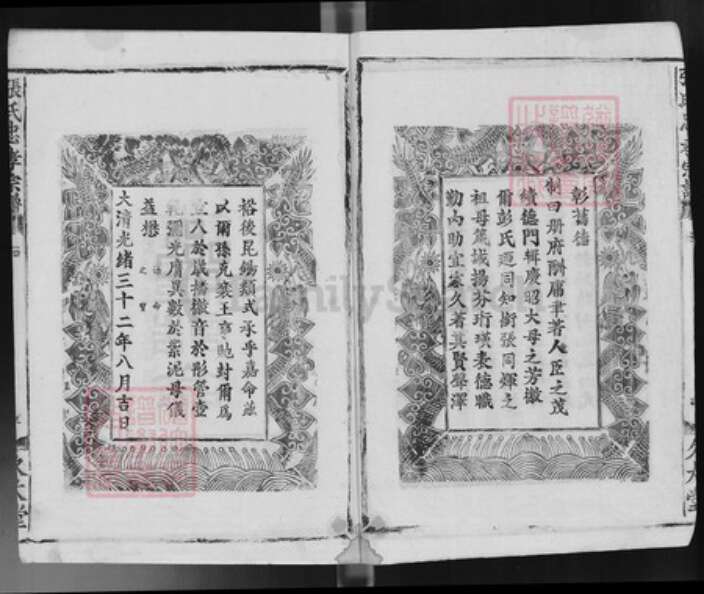 彰舊德
制曰册府酬庸聿著人臣之茂
績德門輯慶昭大母之芳徽
爾彭氏迺同知銜張同輝之
祖母箴誡揚芬珩璜表德職
勤內助宜家久著其賢聲澤
裕後昆錫類式承乎嘉命茲
以爾孫克襄王事貤封爾為
宜人於戲播徽音於彤管壼
範彌光膺異數於紫泥母儀
益懋
大清光緒三十二年八月吉日
之寶
張氏忠孝宗譜